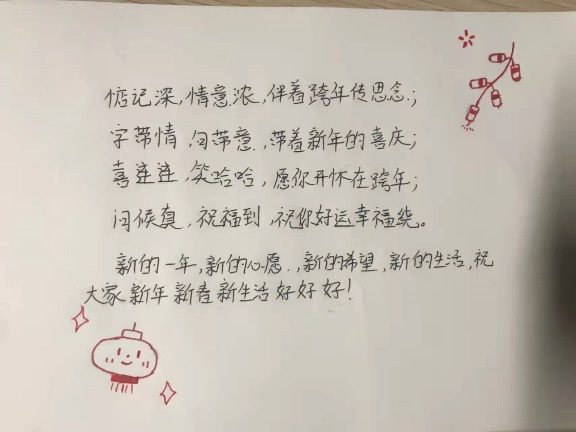 惦记深,情意浓,伴着跨年传思念.;
字带情,句带意.,带着新年的喜庆;
喜连连,笑哈哈,愿你开怀在跨年;
问候真,祝福到,祝你好运幸福绕。
新的一年,新的心愿.,新的希望,新的生活,祝
大家新年新春新生活好好好!